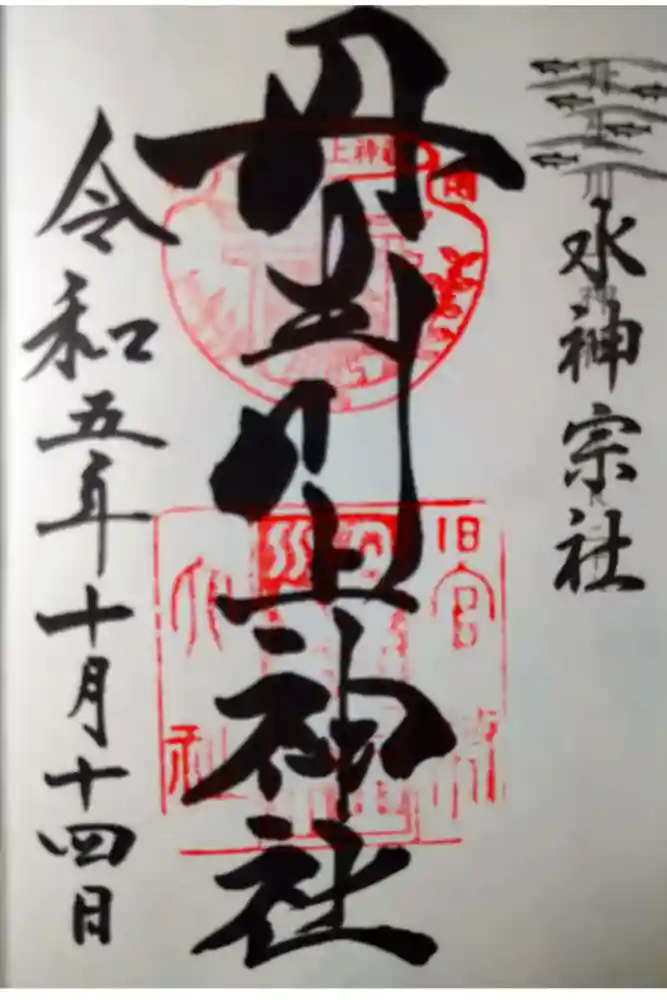 水神宗社
丹生川上神社
旧官幣
大社
令和五年十月十四日